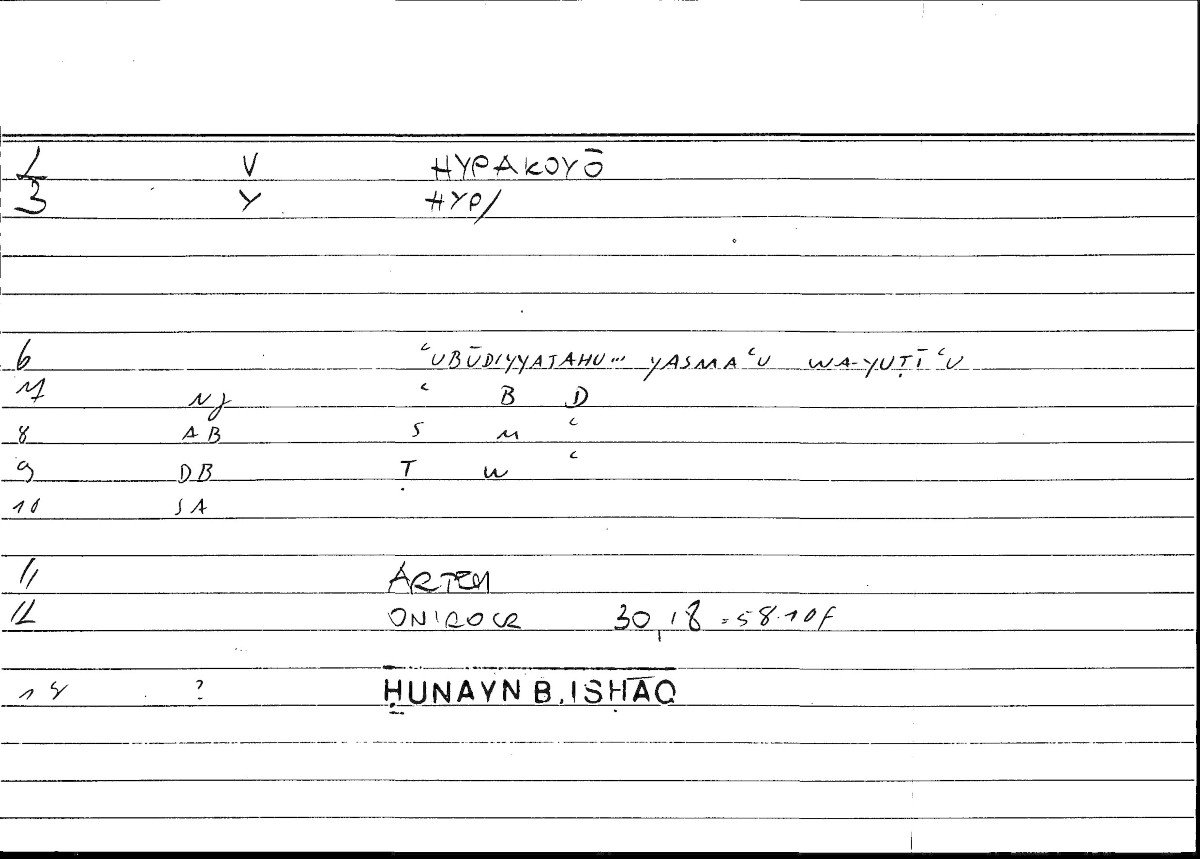 1 V HYPAKOYŌ
3 Y HYP/
6 ʿUBŪDIYYATAHU... YASMAʿU WA-YUṬĪʿU
7 NJ ʿ B D
8 AB S M ʿ
9 DB Ṭ W ʿ
10 SA
11 ARTEM
12 ONIROCR 30,18 = 58.10F
14 ? ḤUNAYN B. ISḤĀQ